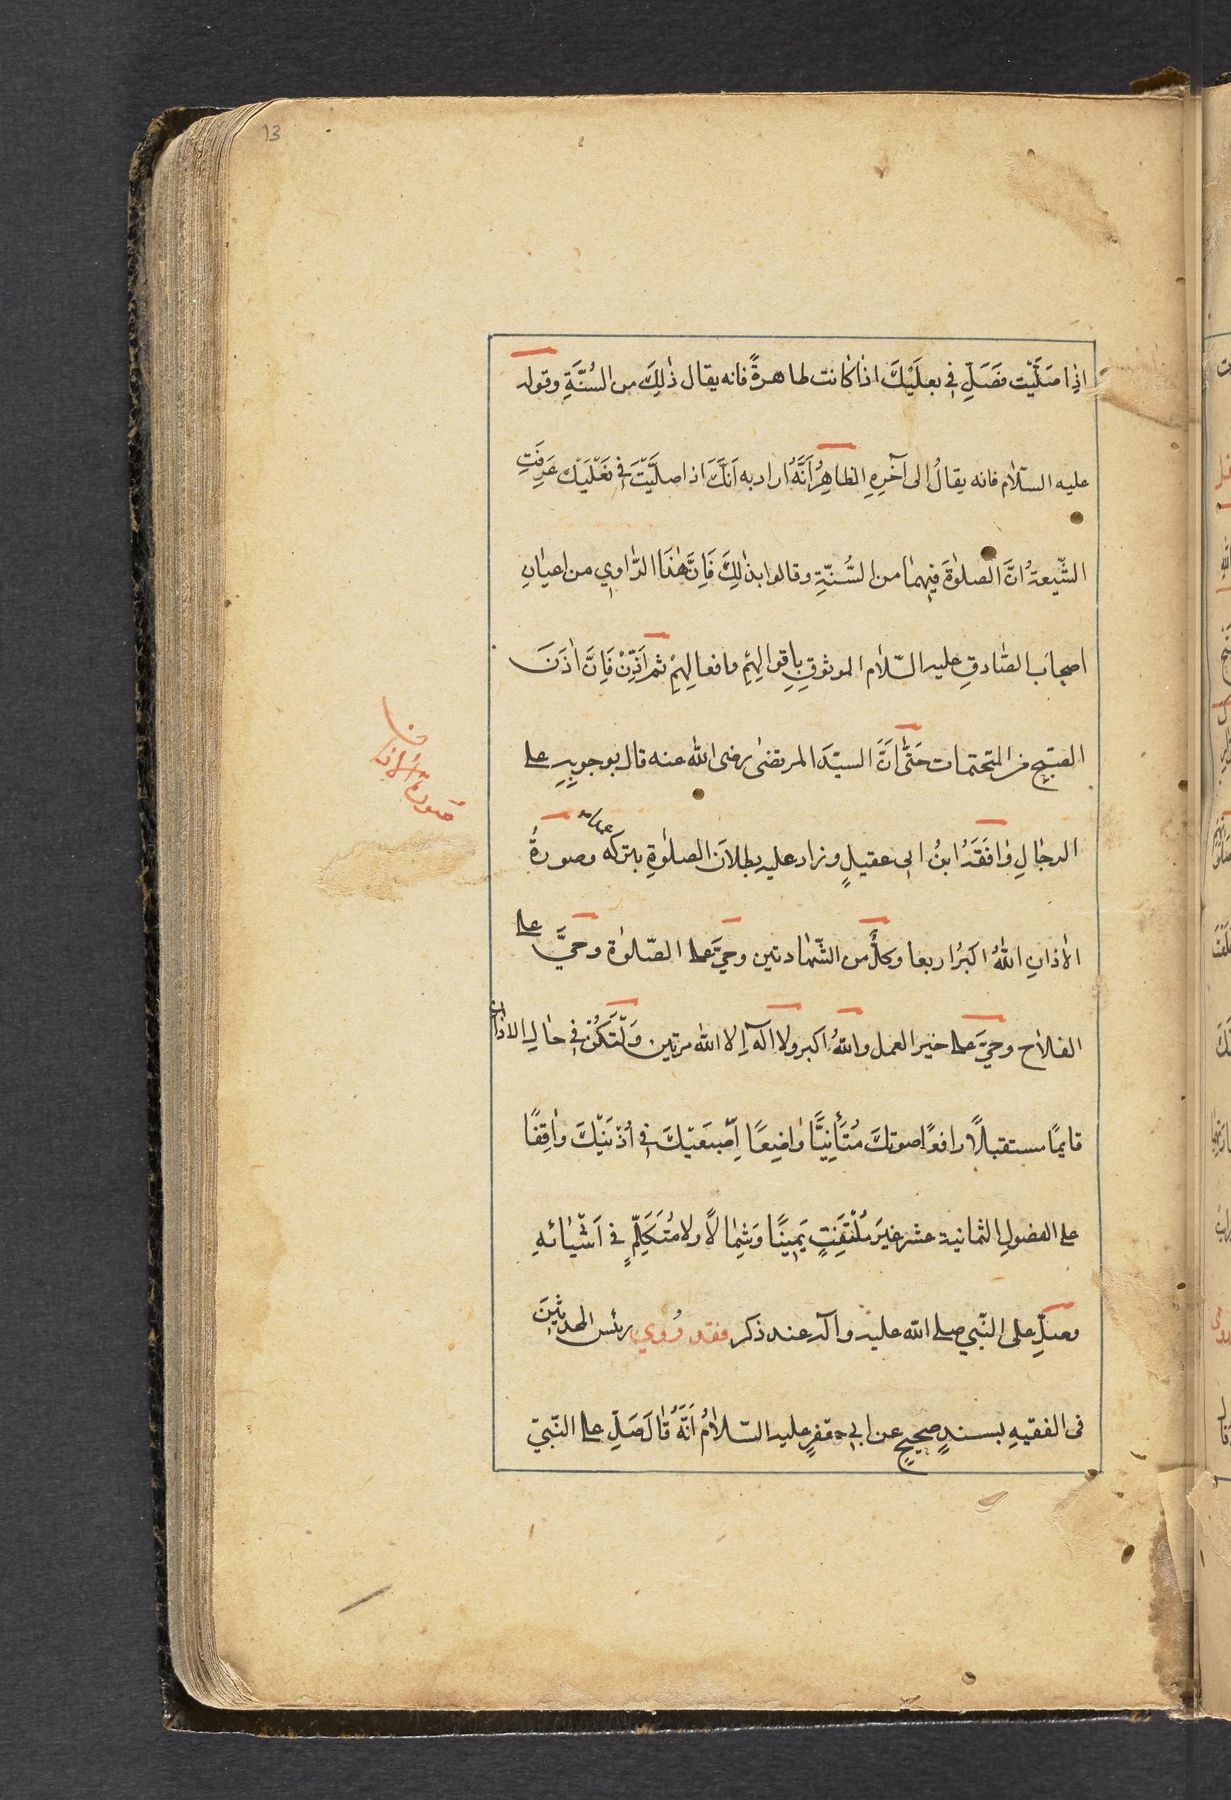 13
اذِا صَلَّيْتَ فَصَلِّ فِي نعلَيْكَ اذا كانت طاهرةً فانه يقال ذٰلِكَ من السُنَّةِ وقوله
عليه السّلام فانه يقالُ الى آخرِهِ الظاهِرُ اَنَّهُ اراد به اَنَّكَ اذا صلَّيْتَ فِي نَعْلَيْكَ عَرِفَتِ
الشّيعَةُ انَّ الصلوٰةَ فيهما من السُّنّةِ وقالوا بذٰلِكَ فَاِنَّ هٰذَا الرّاوي من اعيانِ
اصحاب الصّادقِ عليه السّلام الموثوقِ باقوالِهِمْ وافعالِهِمْ ثم اَذِّنْ فَاِنَّ اذٰنَ
الصّبح من المتحتمات حَتّٰى اَنَّ السيّدَ المرتضى رضى الله عنه قال بوجوبِهِ على
الرجالِ وافَقَهُ ابنُ ابى عقيلٍ وزاد عليه بطلانَ الصلوٰةِ بتركه وصورةُ
الاذانِ اللهُ اكبرُ اربعا وكلٌّ من الشّهادتين وحيَّ على الصّلوٰة وحيَّ على
الفلاح وحيَّ على خير العمل واللهُ اكبر ولا الٓه الا الله مرتين وَلْتَكُنْ فِي حالِ الاذان
قايمًا مستقبلاً رافعًا صوتكَ مُتَأَنِّيًّا واضِعًا اِصْبعَيْكَ فِي اُذْنَيْكَ واقِفًا
على الفصولِ الثمانية عشر غيرَ مُلْتَفِتٍ يَمِينًا وَشِمالًا ولا مُتَكَلِّمٍ فِي اَثْنٰائهِ
وصلِّ على النّبي صلى الله عليه وآله عند ذكر فقد رُوي رئس المحدثينَ
فى الفقيهِ بسندٍ صحيحٍ عن ابي جعفرٍ عليه السّلامُ اَنَّهُ قالَ صَلِّ على النّبيّ
صورة الاذان